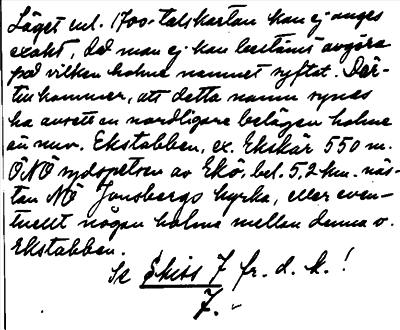 Läget enl. 1700-talskartan kan ej anges
exakt, då man ej kan bestämt avgöra
på vilken holme namnet syftat. Där-
till kommer, att detta namn synes
ha avsett en nordligare belägen holme
än nuv. Ekstabben, ex. Ekskär 550 m.
ONO sydspetsen av Ekö, bel. 5,2 km. näs-
tan NO Jonsbergs kyrka, eller even-
tuellt någon holme mellan denna o.
Ekstabben.
Se Skiss 7 fr. d. k.!
7.